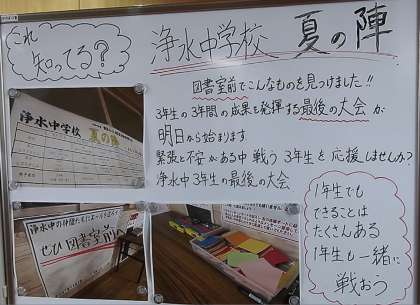 これ
知ってる?
浄水中学校 夏の陣
図書室前でこんなものを見つけました!!
3年生の3年間の成果を発揮する最後の大会が
明日から始まります
緊張と不安がある中 戦う 3年生を応援しませんか?
浄水中3年生の最後の大会
浄水中学校
夏の陣
浄水中の仲間たちにエールを送ろう
ぜひ図書室前へ
1年生でも
できることは
たくさんある
1年生も一緒に
戦おう